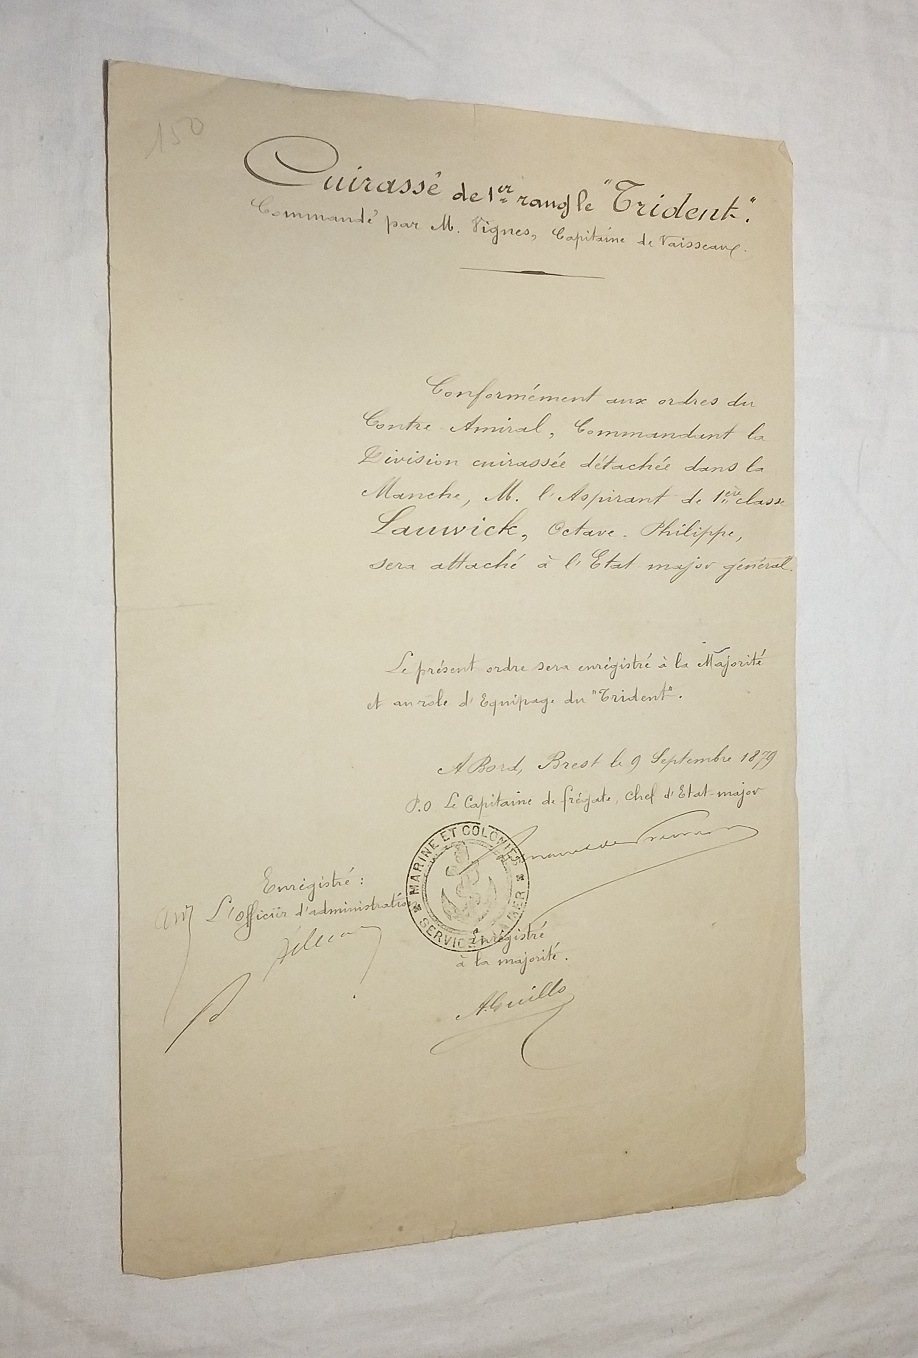 150
Cuirassé de 1er rang le "Trident".
Commandé par M. Vignes, Capitaine de Vaisseau.
Conformément aux ordres du
Contre Amiral, Commandant la
Division cuirassée détachée dans la
Manche, M. l'Aspirant de 1ère classe
Lauwick, Octave. Philippe,
sera attaché à l'Etat major général.
Le présent ordre sera enrégistré à la Majorité
et au rôle d'Equipage du "Trident".
A Bord, Brest le 9 Septembre 1879
P.O. Le Capitaine de frégate, Chef d'Etat-major
MARINE ET COLONIES
SERVICE À LA MER
Enrégistré :
L'Officier d'administration
Enrégistré
à la majorité.
A. Guillo